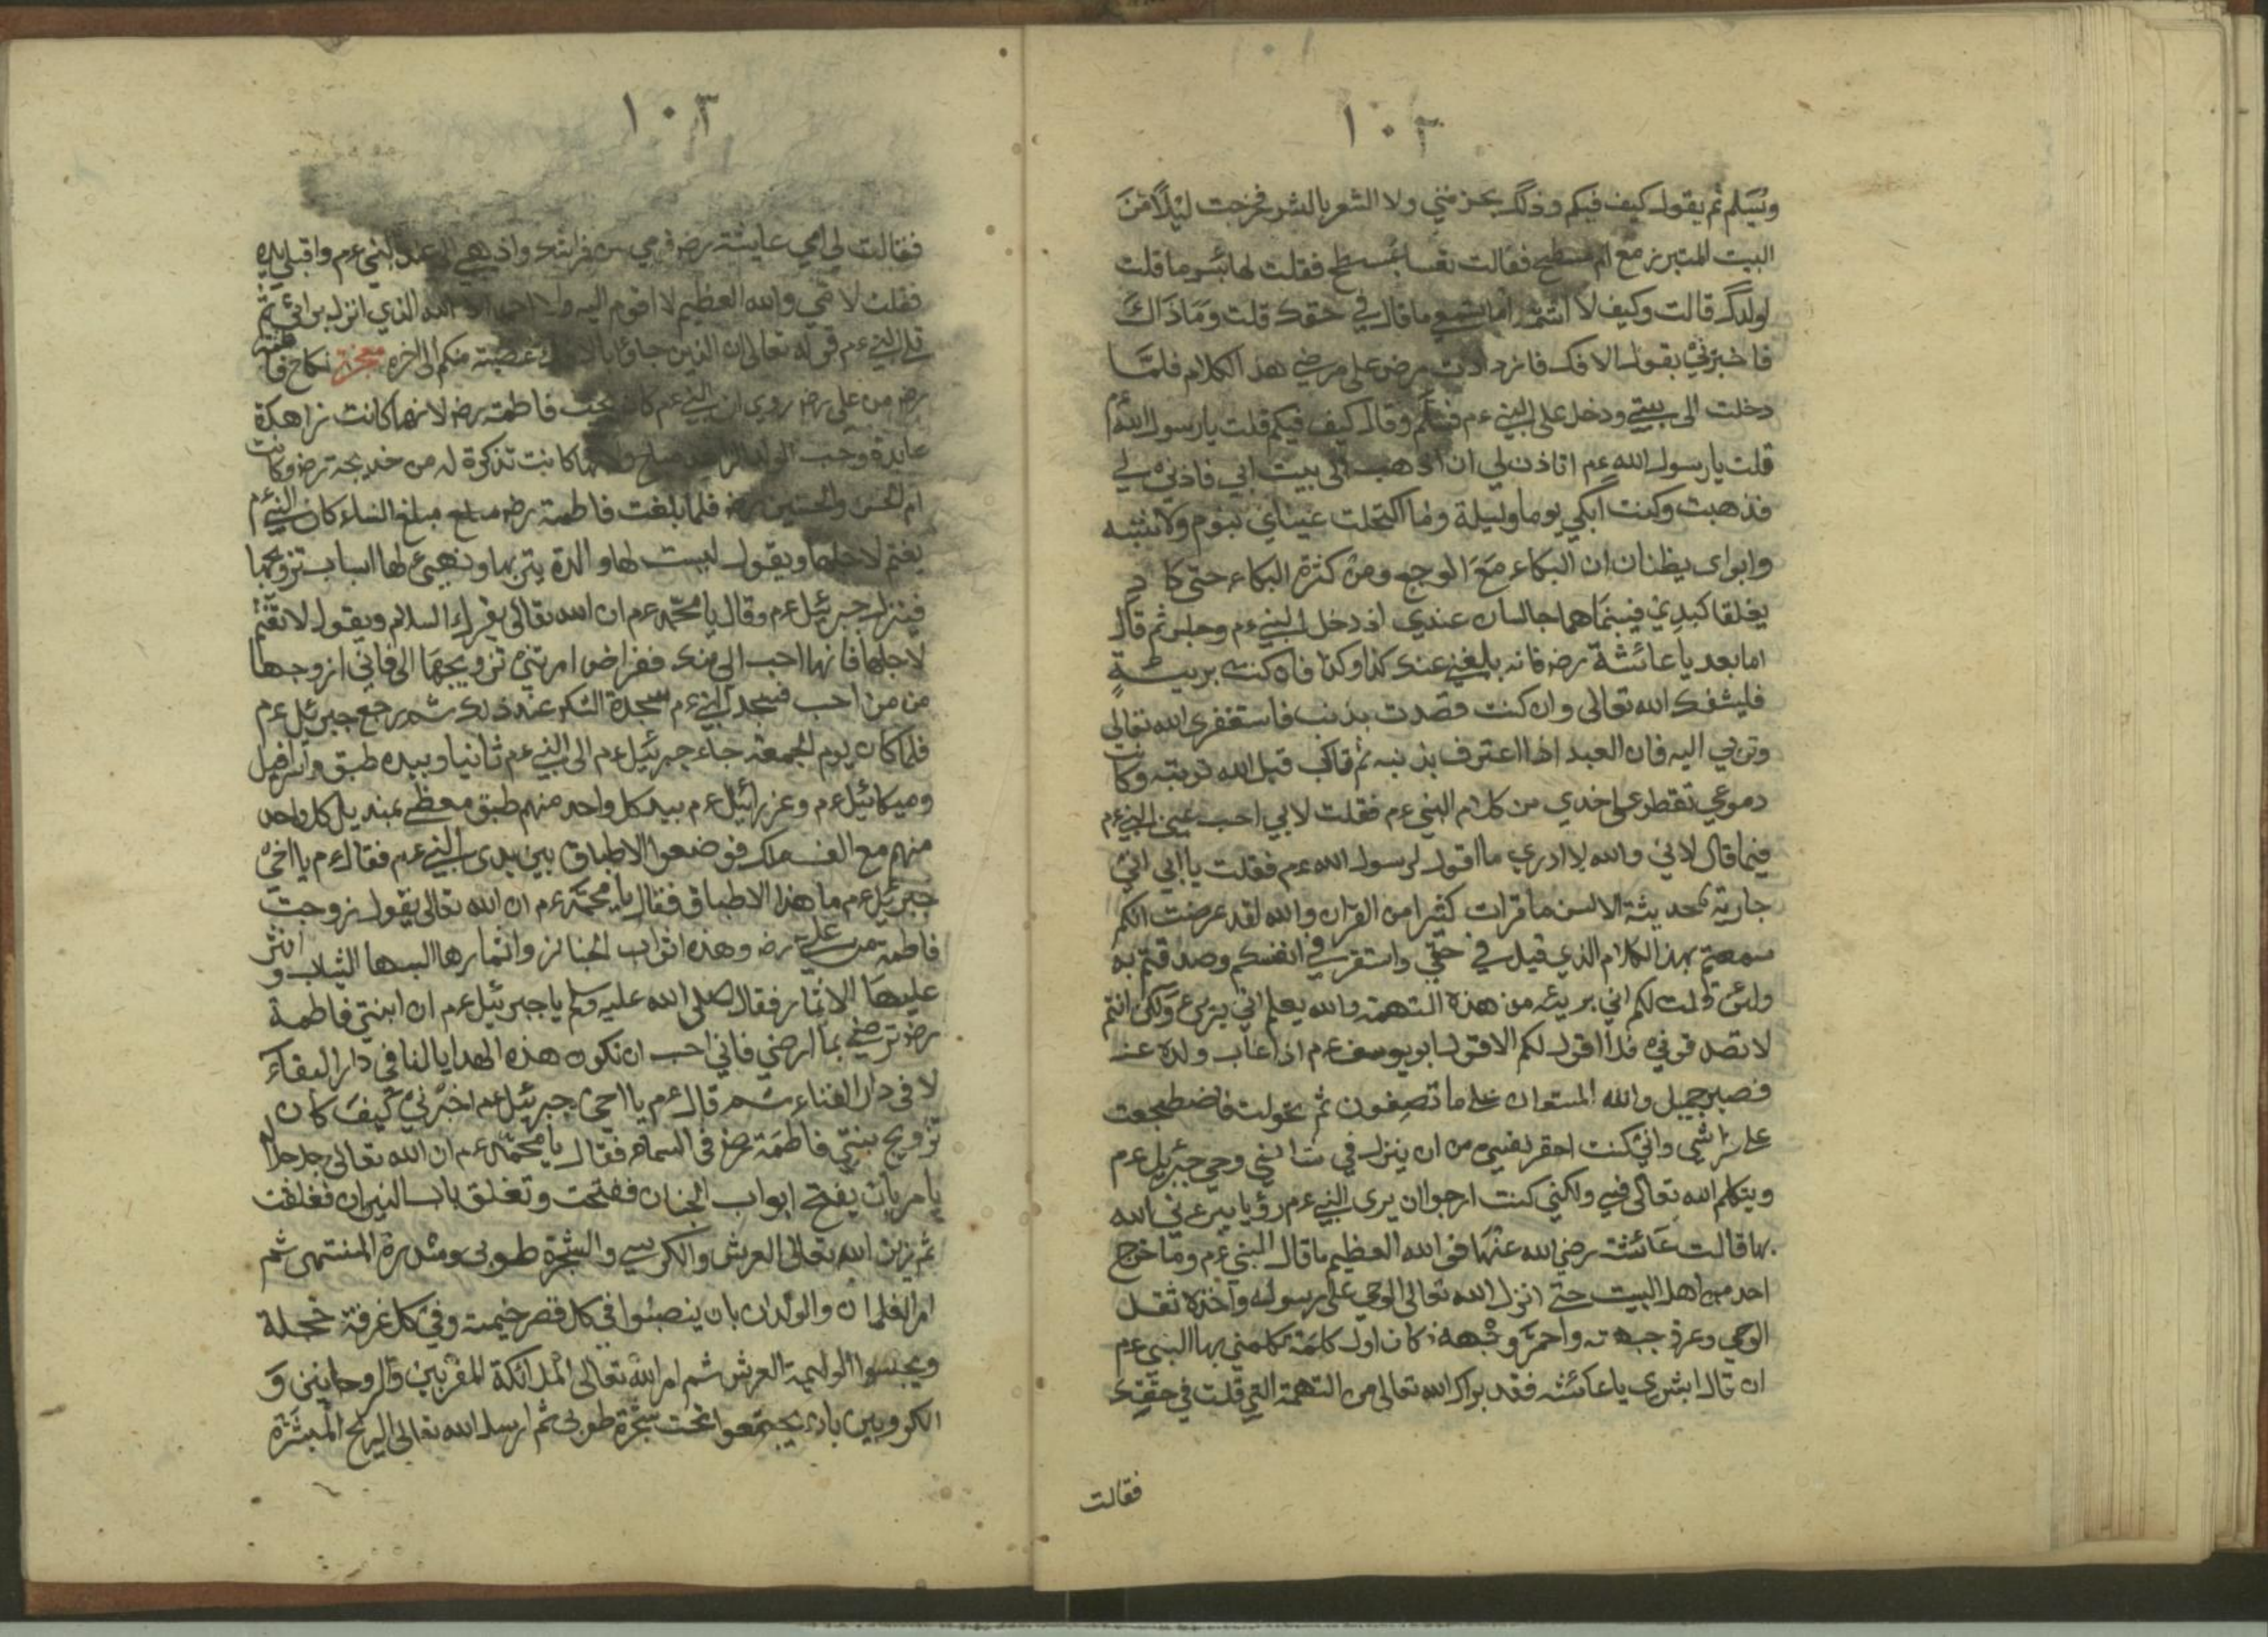 ١٠٢
ويسلم ثم يقول كيف فيكم وذلك يحزنني ولا اشعر بالشر فخرجت ليلا من
البيت المتبرز مع ام مسطح فقالت تعسا لمسطح فقلت لها بئس ما قلت
لولدك قالت وكيف لا اشتم اما تسمع ما قال في حقك قلت وما ذاك
فاخبرتني بقول الافك فازدادت مرض على مرضي هذا الكلام فلما
دخلت الى بيتي ودخل على النبي ءم فسلم وقال كيف فيكم قلت يا رسول الله ءم
قلت يا رسول الله ءم اتاذن لي ان اذهب الى بيت ابي فاذني لي
فذهبت وكنت ابكي يوما وليلة وما اكتحلت عيناي بنوم ولا
وابواى يظنان ان البكاء مع الوجع ومن كثرة البكاء حتى كاد
يغلقا كبدي فبينما هما جالسان عندي اذ دخل النبي ءم وجلس ثم قال
اما بعد يا عائشة رض فانه بلغني عنك كذا وكذا فان كنت بريئة
فليشفك الله تعالى وان كنت قصدت بذنب فاستغفري الله تعالى
وتوبي اليه فان العبد اذا اعترف بذنبه ثم تاب قبل الله توبته وكانت
دموعي تقطر على خدي من كلام النبي ءم فقلت لابي احب عني النبي ءم
فيما قال لاني والله لا ادري ما اقول لرسول الله ءم فقلت يا ابي اني
جارية حديثة الالسن ما قرات كثيرا من القران والله لقد عرضت انكم
سمعتم بهذا الكلام الذي قيل في حقي واستقر في انفسكم وصدقتم به
ولئن قلت لكم اني بريئه من هذه التهمة والله يعلم اني بريء ولكن انتم
لا تصدقوني فلا اقول لكم الا قول ابو يوسف ءم اذا غاب ولده عنه
فصبر جميل والله المستعان على ما تصفون ثم تحولت فاضطجعت
على فراشي واني كنت احقر نفسي من ان ينزل في شاني وحي جبرئيل ءم
ويتكلم الله تعالى في ولكني كنت ارجوا ان يرى النبي ءم رؤيا يبرءني الله
بها قالت عائشة رضي الله عنها فو الله العظيم ما قال النبي ءم وما خرج
احد من اهل البيت حتى انزل الله تعالى الوحي على رسوله واخذه ثقل
الوحي وعرق جبهته واحمر وجهه فكان اول كلمة كلمني بها النبي ءم
ان قال ابشري يا عائشه فقد براك الله تعالى من التهمة التي قلت في حقك
فقالت
١٠٣
فقالت لي امي عايشة رض قومي من فراشك واذهبي الى عند النبي ءم واقبلي يده
فقلت لا قمي والله العظيم لا اقوم اليه ولا احمد الا الله الذي انزل براني ثم
تلى النبي ءم قوله تعالى ان الذين جاؤا بالافك عصبة منكم الى اخره معجزة نكاح فاطمة
رض من علي رض روي ان النبي ءم كان يحب فاطمة رض لانها كانت زاهدة
عابدة وحب الولد الزاهد صلح ولانها كانت تذكرة له من خديجة رض وكانت
ام الحسن والحسين رض فلما بلغت فاطمة رض مبلغ مبلغ النساء كان النبي ءم
يغتم لاجلها ويقول ليست لها والدة يتربها وتهيئ لها اسباب تزويجها
فينزل جبرئيل ءم وقال يا محمد ءم ان الله تعالى يقرك السلام ويقول لا تغتم
لاجلها فانها احب الي منك ففراض امرتني تزويجها الى فاني ازوجها
من من احب فسجد النبي ءم سجدة الشكر عند ذلك ثم رجع جبرئيل ءم
فلما كان يوم الجمعة جاء جبرئيل ءم الى النبي ءم ثانيا وبيده طبق واسرافيل
وميكائيل ءم وعزرائيل ءم بيد كل واحد منهم طبق مغطى بمنديل كل واحد
منهم مع الف ملك فوضعوا الاطباق بين يدى النبي ءم فقال ءم يا اخي
جبرئيل ءم ما هذا الاطباق فقال يا محمد ءم ان الله تعالى يقول زوجت
فاطمة من علي رض وهذه اثواب الجنا نز واثمارها البسها الثياب وانثر
عليها الاثمار فقال صلى الله عليه وسلم يا جبرئيل ءم ان ابنتي فاطمة
رض ترضى بما ارضي فاني احب ان تكون هذه الهدايا لنا في دار البقاء
لا في دار الفناء ثم قال ءم يا اخي جبرئيل ءم اخبرني كيف كان
تزويج بنتي فاطمة رض في السماء فقال يا محمد ءم ان الله تعالى جل جلاله
يامر بان يفتح ابواب الجنان ففتحت وتغلق باب النيران فغلقت
ثم زين الله تعالى العرش والكرسي والشجرة طوبى وسدرة المنتهى ثم
امر الغلمان والولدان بان ينصبوا في كل قصر خيمة وفي كل غرفة حجلة
ويجبسوا الوليمة العرش ثم امر الله تعالى الملائكة المقربين والروحانيين و
الكروبين بان يجتمعوا تحت شجرة طوبى ثم ارسل الله تعالى الريح المبشرة